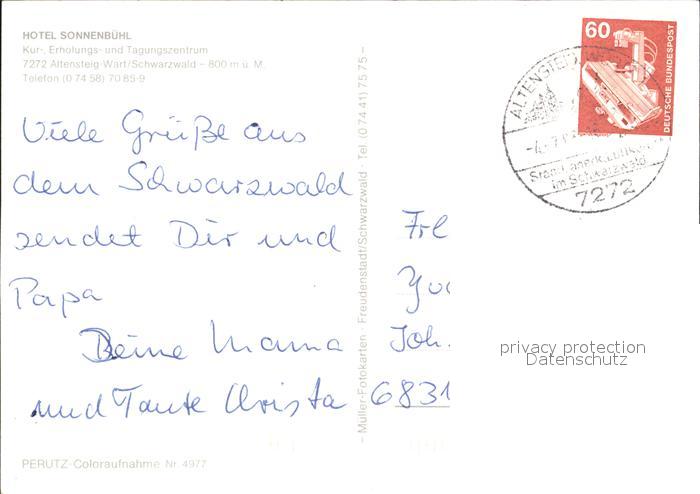 HOTEL SONNENBÜHL
Kur-, Erholungs- und Tagungszentrum
7272 Altensteig-Wart/Schwarzwald – 800 m ü. M.
Telefon (0 74 58) 70 85-9
Viele Grüße aus
dem Schwarzwald
sendet Dir und
Papa
Deine Mama
und Tante Christa
PERUTZ-Coloraufnahme Nr. 4977
– Müller-Fotokarten · Freudenstadt/Schwarzwald · Tel. (0 74 41) 75 75 –
60
DEUTSCHE BUNDESPOST
ALTENSTEIG
im Schwarzwald
7272
Frl
Joh.
6831
privacy protection
Datenschutz